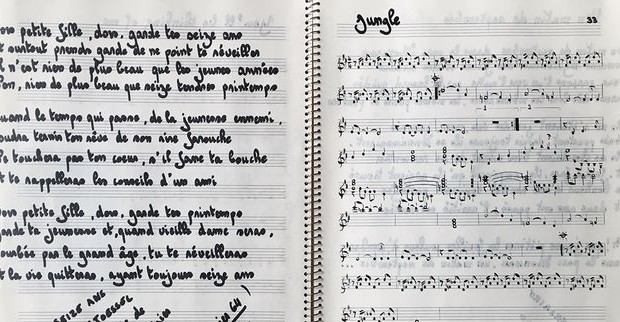 ors petite fille, dors, garde tes seize ans
t surtout prends garde de ne point te réveiller
l n'est rien de plus beau que les jeunes années
on, rien de plus beau que seize tendres printemps
uand le temps qui passe, de la jeunesse ennemi,
oudra ternir ton rêve de son rire farouche
touchera pas ton coeur, s'il fane ta bouche
t te rappelleras les conseils d'un ami
ors petite fille, dors, garde tes printemps
arde ta jeunesse et, quand vieille dame seras,
ourbée par le grand âge, tu te réveilleras
t la vie quitteras, ayant toujours seize ans
EIZE ANS
de
Jungle
33
1 2